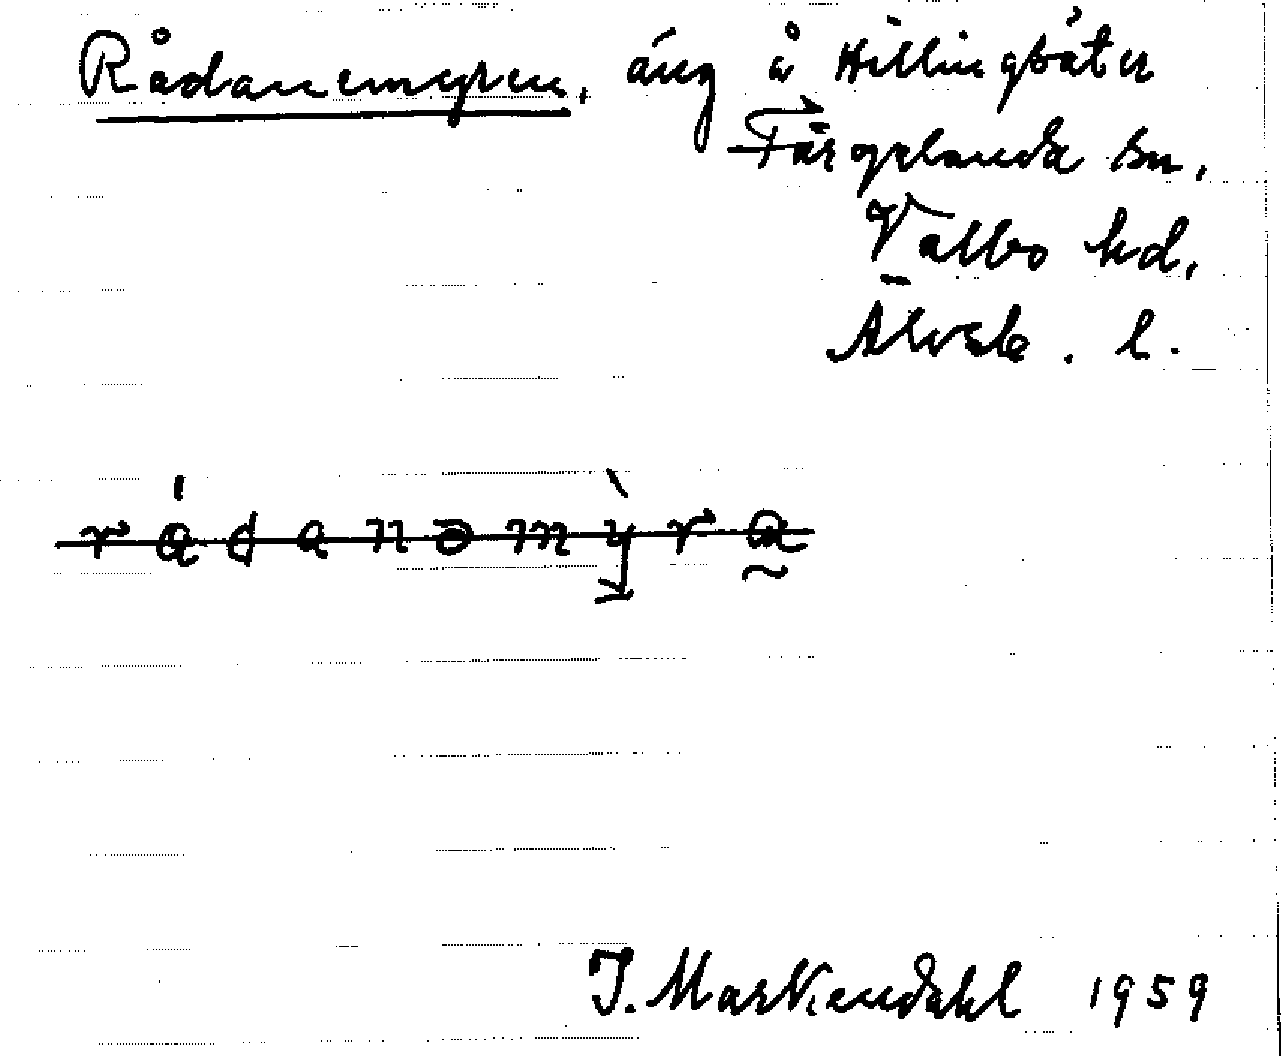 Rådanemyren, äng å Hillingsäter
Färgelanda sn,
Valbo hd,
Älvsb. l.
J. Markendahl 1959